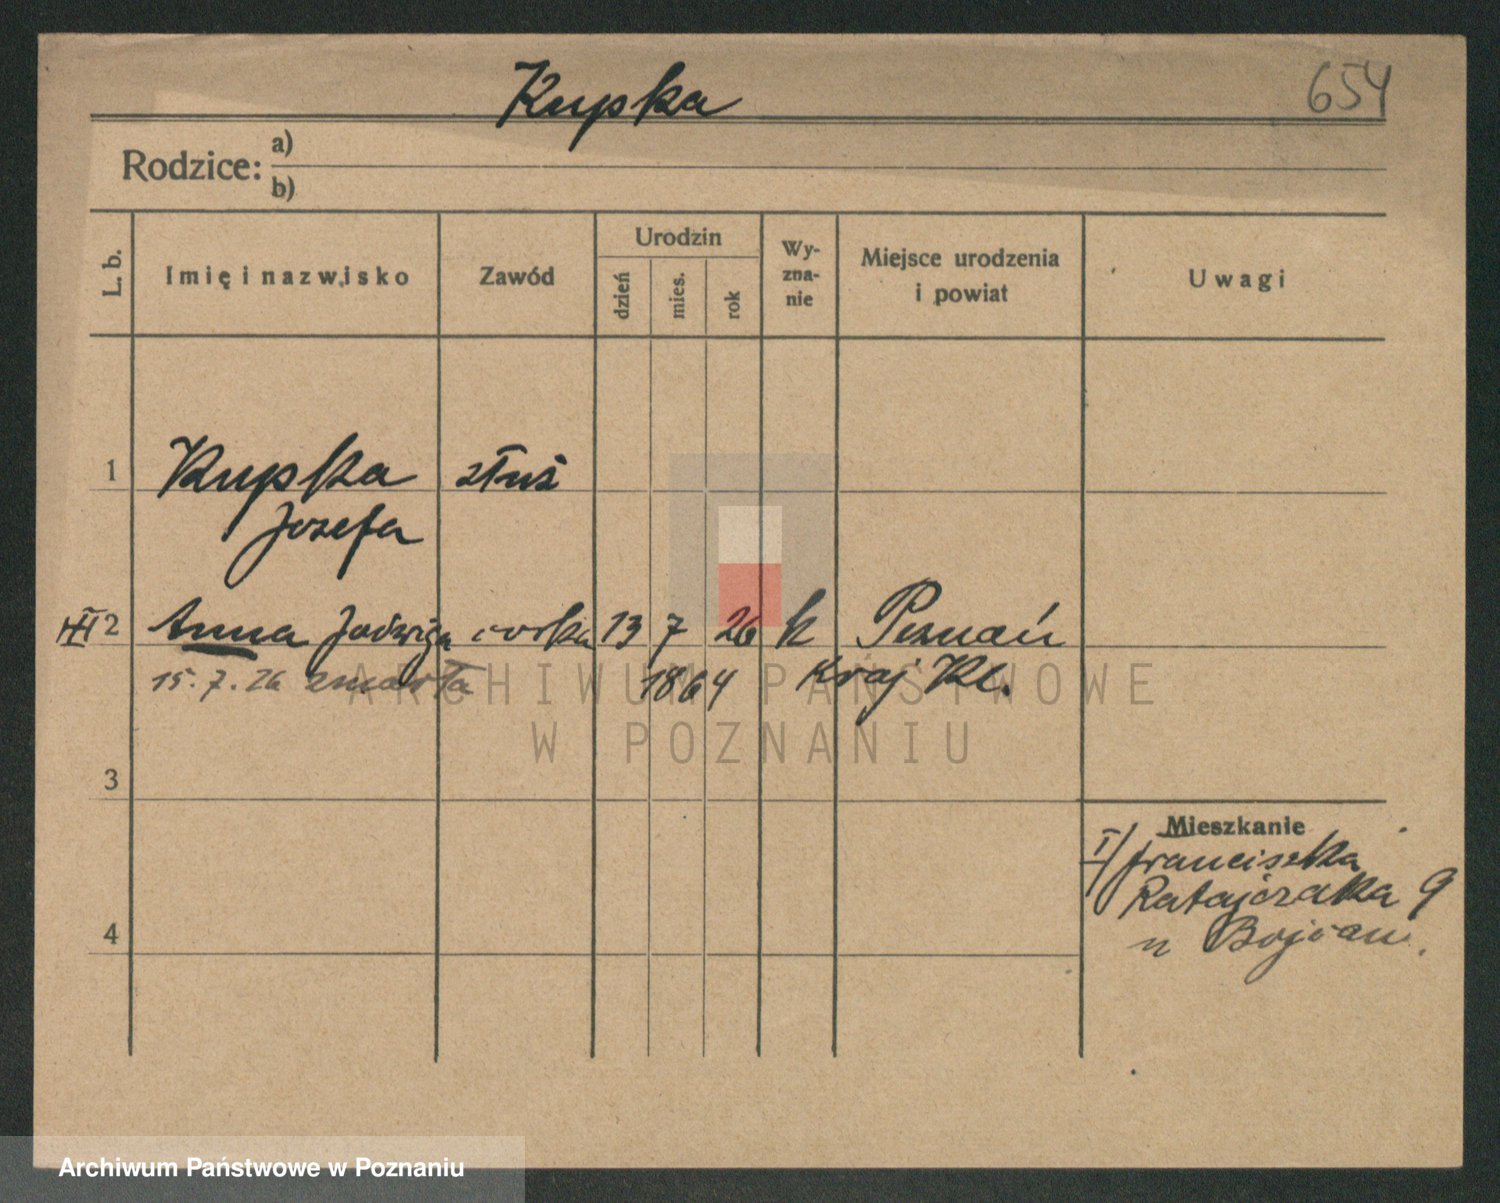 Kupka
654
Rodzice: a)
b)
L. b.
Imię i nazwisko
Zawód
Urodzin
dzień
mies.
rok
Wy-
zna-
nie
Miejsce urodzenia
i powiat
Uwagi
1 Kupka służ
Józefa
2 Anna Jadwiga córka 13 7 26 k Poznań
15.7.26 zmarła 1864 Kraj Kl.
3
Mieszkanie
I/ Franciszka
Ratajczaka 9
4
u Bojean.
ARCHIWUM PAŃSTWOWE
W POZNANIU
Archiwum Państwowe w Poznaniu